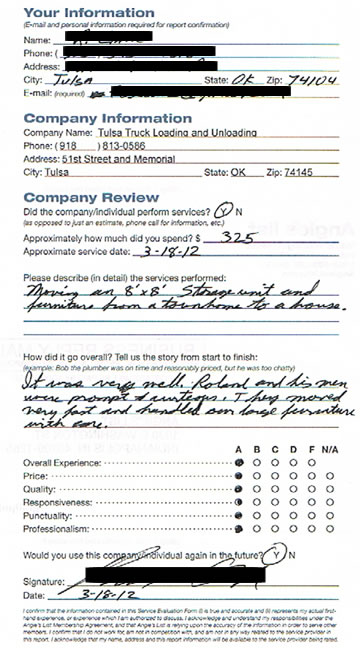 Your Information
(E-mail and personal information required for report confirmation)
Name:
Phone: (
Address:
City: Tulsa State: OK Zip: 74104
E-mail: (required)
Company Information
Company Name: Tulsa Truck Loading and Unloading
Phone: (918 ) 813-0586
Address: 51st Street and Memorial
City: Tulsa State: OK Zip: 74145
Company Review
Did the company/individual perform services? Y N
(as opposed to just an estimate, phone call for information, etc.)
Approximately how much did you spend? $ 325
Approximate service date: 3-18-12
Please describe (in detail) the services performed:
Moving an 8'x8' Storage unit and
furniture from a townhome to a house.
How did it go overall? Tell us the story from start to finish:
(example: Bob the plumber was on time and reasonably priced, but he was too chatty)
It was very well. Roland and his men
were prompt & curteous. They moved
very fast and handled our large furniture
with care.
A B C D F N/A
Overall Experience:
Price:
Quality:
Responsiveness:
Punctuality:
Professionalism:
Would you use this company/individual again in the future? Y N
Signature:
Date: 3-18-12
I confirm that the information contained in this Service Evaluation Form (i) is true and accurate and (ii) represents my actual first-
hand experience, or experience which I am authorized to discuss. I acknowledge and understand my responsibilities under the
Angie's List Membership Agreement, and that Angie's List is relying upon the accuracy of the information in order to serve other
members. I confirm that I do not work for, am not in competition with, and am not in any way related to the service provider in
this report. I acknowledge that my name, address and this report information will be available to the service provider being rated.